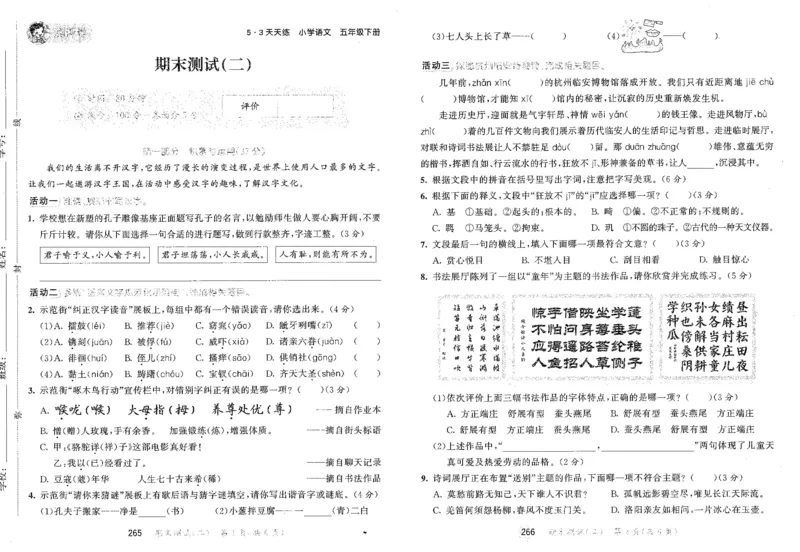 5·3天天练 小学语文 五年级下册
期末测试(二)
评价
我们的生活离不开汉字,它经历了漫长的演变过程,是世界上使用人口最多的文字。
让我们一起遨游汉字王国,在活动中感受汉字的趣味,了解汉字文化。
活动一
1. 学校想在新塑的孔子雕像基座正面题写孔子的名言,以勉励师生做人要心胸开阔,不要
斤斤计较。请你从下面选择一句合适的进行题写,做到行款整齐,字迹工整。(3分)
君子喻于义,小人喻于利。 君子坦荡荡,小人长戚戚。 人有耻,则能有所不为。
活动二
2. 示范街“纠正汉字读音”展板上,每组中都有一个错误读音,请你选出来。(4分)
(1)A. B. 推荐(jiè) C. 窈窕(yǎo) D. 龇牙咧嘴(zī) ( )
(2)A. 镌刻(juān) B. 被俘(fú) C. 威吓(xià) D. 诸亲六眷(juàn) ( )
(3)A. 徘徊(huí) B. 侄儿(zhí) C. 搔痒(sāo) D. 供销社(gōng) ( )
(4)A. 黏土(nián) B. 踌躇(chóu) C. 宝钗(chāi) D. 齐天大圣(shèn) ( )
3. 示范街“啄木鸟行动”宣传栏中,对错别字纠正有误的是哪一项?( )(3分)
A. 喉咙(喉) 大母指(拇) 养尊处优(尊) ——摘自作业本
B. 憎(赠)人玫瑰,手有余香。 加强锻练(炼),增强体质。 ——摘自街头标语
C. 甲:《骆驼详(祥)子》这部电影真好看!
乙:我以(已)经看过了。 ——摘自聊天记录
D. 豆寇(蔻)年华 人生七十古来希(稀) ——摘自书法作品
4. 示范街“请你来猜谜”展板上有歇后语与猜字谜填空,请你写出谐音字或谜底。(4分)
(1)孔夫子搬家——净是____(书) (2)小葱拌豆腐——____(青)二白
265
(3)七人头上长了草——( ) (4)——( )
活动三
几年前,zhǎn xīn( )的杭州临安博物馆落成开放。我们只有近距离地 jiē chù
( )博物馆,才能知 xī( )馆内的秘密,让沉寂的历史重新焕发生机。
走进历史厅,迎面就是气宇轩昂、神情 wēi yán( )的钱王像。走进风物厅,bù
zhì( )着的几百件文物向我们展示着历代临安人的生活印记与哲思。走进临时展厅,
对联和诗词书法展让人不禁驻足 dòu( )留。那 duān zhuāng( )雄伟、意蕴无穷
的楷书,挥洒自如、行云流水的行书,狂放不 jī、形神兼备的草书,让人____,沉浸其中。
5. 根据文段中的拼音在括号里写出字词,注意把字写美观。(6分)
6. 根据下面的释义,文段中“狂放不 jī”的“jī”应选择哪一项?( )(3分)
A. 基 ①基础。②起头的;根本的。 B. 畸 ①偏。②不正常的;不规则的。
C. 羁 ①马笼头。②拘束。 D. 玑 ①不圆的珠子。②古代的一种天文仪器。
7. 文段最后一句的横线上,填入下面哪一项最符合文意?( )(3分)
A. 赏心悦目 B. 不堪入目 C. 刮目相看 D. 触目惊心
8. 书法展厅陈列了一组以“童年”为主题的书法作品,请你欣赏并完成练习。(5分)
昼出耘田夜
绩麻村庄儿
女各当家童
孙未解供耕
织也傍桑阴
学种瓜
(1)依次评价上面三幅书法作品的字体特点,正确的是哪一项?( )(3分)
A. 方正端庄 舒展有型 蚕头燕尾 B. 舒展有型 蚕头燕尾 方正端庄
C. 舒展有型 方正端庄 蚕头燕尾 D. 蚕头燕尾 舒展有型 方正端庄
(2)上述作品中,“____,____”两句体现了儿童天
真可爱及热爱劳动的品格。(2分)
9. 诗词展厅正在布置“送别”主题的作品,下面哪一项不符合主题?( )(3分)
A. 莫愁前路无知己,天下谁人不识君? B. 孤帆远影碧空尽,唯见长江天际流。
C. 羌笛何须怨杨柳,春风不度玉门关。 D. 洛阳亲友如相问,一片冰心在玉壶。
266